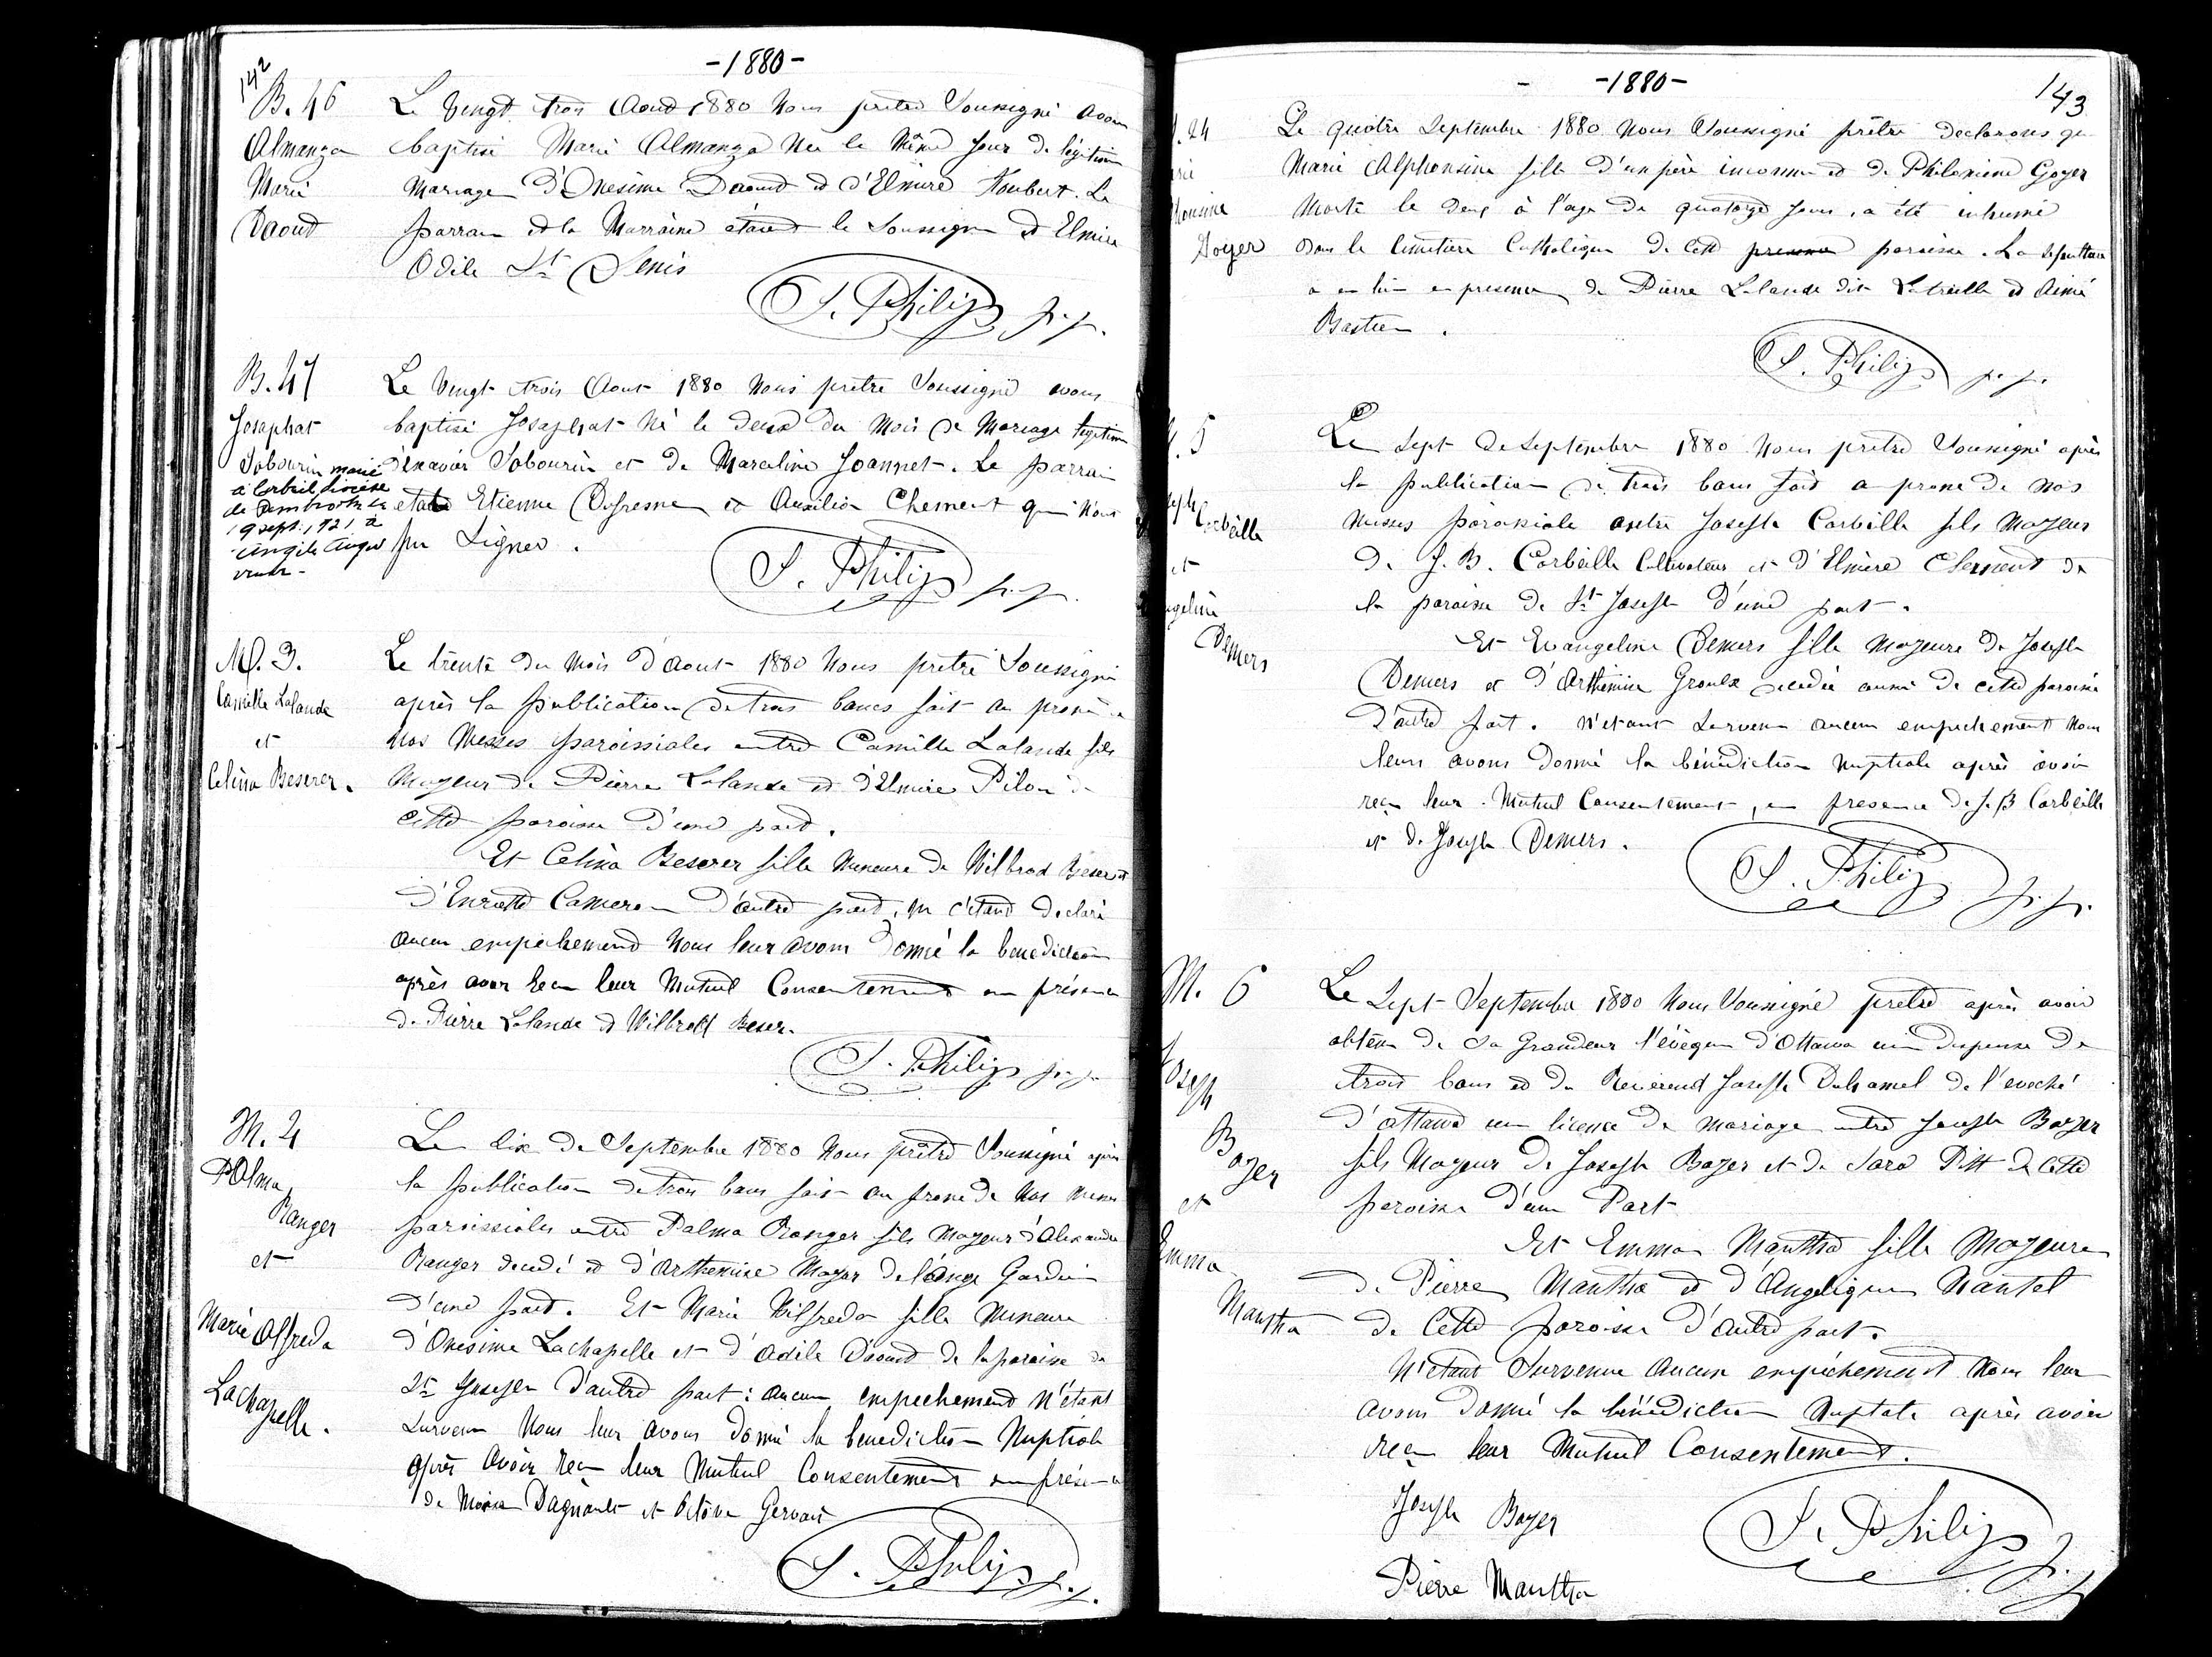 142
-1880-
B. 46
Almanza
Marie
Daoust
Le vingt trois Aout 1880 Nous prêtre Soussigné avons
baptisé Marie Almanza Née le Même jour de légitime
Mariage d'Onesime Daoust et d'Elmire Joubert. Le
parrain et la Marraine étaient le Soussigné et Elmire
Odile St Denis
S. Philip p.p.
B. 47
Josaphat
Sabourin marié
à Corbeil, diocèse
de Pembroke le
19 sept. 1921 à
Le Vingt trois Aout 1880 Nous prêtre Soussigné avons
baptisé Josaphat Né le deux du Mois de Mariage légitime
Sabourin et de Marceline Joannet. Le parrain
etait Etienne Dufresne et Aurélia Clement qui n'ont
pu Signer.
S. Philip p.p.
M. 3.
Camille Lalande
et
Celina Beserer.
Le trente du Mois d'Aout 1880 Nous prêtre Soussigné
après la publication de trois bancs fait au prone de
Nos Messes paroissiales entre Camille Lalande fils
Mageur de Pierre Lalande et d'Elmire Pilon de
cette paroisse d'une part.
Et Celina Beserer fille Mineure de Wilbrod Beserer et
d'Enriette Cameron d'autre part, declaré
aucun empechement Nous leur avons donné la benediction
après avoir recu leur Mutuel Consentement en présence
de Pierre Lalande et Wilbrod Beser.
S. Philip p.p.
M. 4
Palma
Ranger
et
Marie Alfreda
Lachapelle.
Le dix de Septembre 1880 Nous prêtre Soussigné après
la publication de trois bans fait au prone de Nos Messes
paroissiales entre Palma Ranger fils Mageur d'Alexandre
Ranger decedé et d'Arthemise Mayer de l'Ange Gardien
d'une part. Et Marie Wilfreda fille Mineure
d'Onesime Lachapelle et d'Odile Daoust de la paroisse de
St Joseph d'autre part: aucun empechement N'étant
Survenu Nous leur avons donné la benediction Nuptiale
après avoir reçu leur Mutuel Consentement en présence
de Moise Dagnault et Octave Gervais
S. Philip p.p.
-1880-
143
24
Goyer
Le quatre Septembre 1880 Nous Soussigné prêtre declarons que
Marie Alphonsine fille d'un père inconnu et de Philomène Goyer
Morte le deux à l'age de quatorze jours, a été inhumé
dans le Cimetière Catholique de cette paroisse. La sepulture
a eu lieu en presence de Pierre Lalande dit Latreille et Aimé
Bastien.
S. Philip p.p.
5
Corbeille
et
Demers
Le Sept de Septembre 1880 Nous prêtre Soussigné après
la publication de trois bans fait a prone de Nos
Messes paroissiale entre Joseph Corbeille fils Mageur
de J. B. Corbeille Cultivateur et d'Elmire Clement de
la paroisse de St Joseph d'une part.
Et Evangeline Demers fille Mageure de Joseph
Demers et d'Arthémise Groulx decedée aussi de cette paroisse
d'autre part. N'étant Survenu aucun empechement Nous
leurs avons donné la bénédiction Nuptiale après avoir
reçu leur Mutuel Consentement, en presence de J. B Corbeille
et de Joseph Demers.
S. Philip p.p.
M. 6
Joseph
Boyer
et
Emma
Mantha
Le Sept Septembre 1880 Nous Soussigné prêtre après avoir
obtenu de Sa Grandeur l'évèque d'Ottawa une dispense de
trois bans et du Reverend Joseph Duhamel de l'eveché
d'ottawa une licence de mariage entre Joseph Boyer
fils Mageur de Joseph Boyer et de Sara Pitt de Cette
paroisse d'une Part
Et Emma Mantha fille Mageure
de Pierre Mantha et d'Angelique Nantel
de Cette paroisse d'autre part.
N'étant Survenue Aucun empêchement Nous leur
avons donné la bénédiction Nuptale après avoir
reçu leur Mutuel Consentement.
Joseph Boyer
S. Philip p.p.
Pierre Mantha